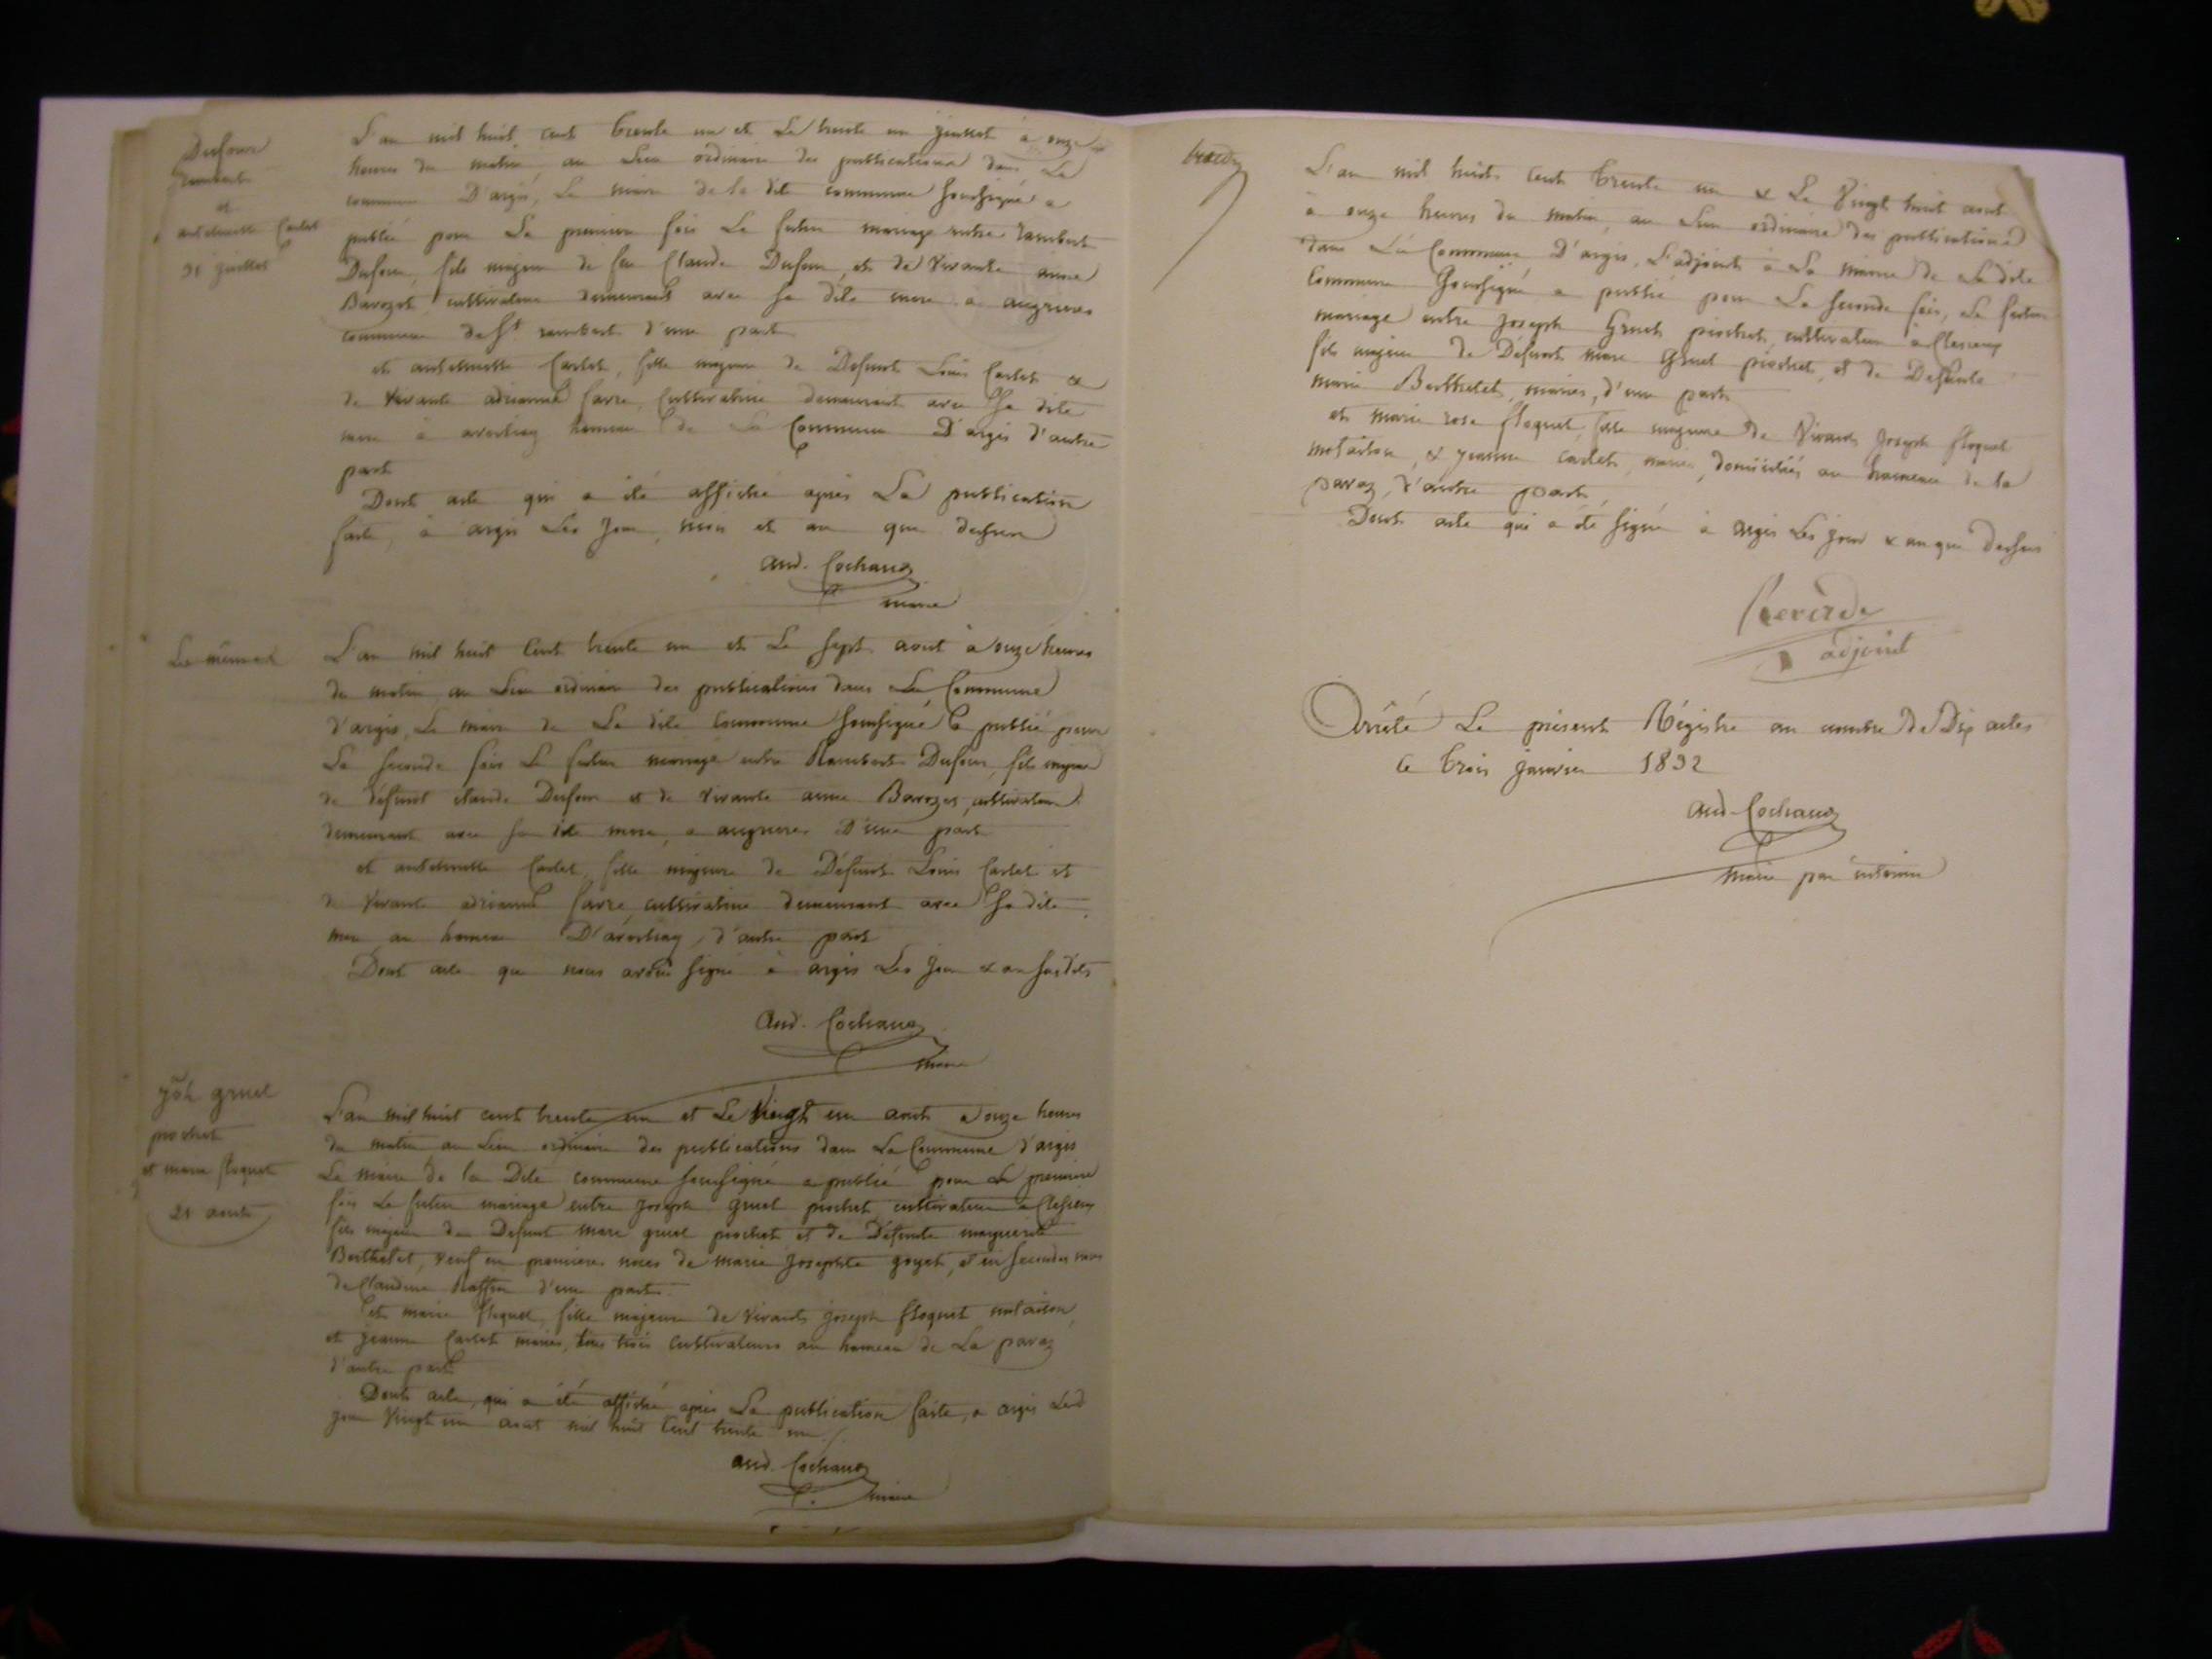 Dufour
rambert
et
anthelmette Carlet
31 juillet
L'an mil huit cent trente un et Le trente un juillet à onze
heures du matin au Lieu ordinaire des publications dans La
commune D'argis, Le maire de la dite commune soussigné a
publié pour La premiere fois Le futur mariage entre rambert
Dufour, fils majeur de feu Claude Dufour, et de vivante anne
Barozet, cultivateur demeurant avec sa dite mere a
commune de St rambert d'une part
et anthelmette Carlet, fille majeure de Défunt Louis Carlet et
de vivante adrianne favre, cultivatrice demeurant avec sa dite
mere à hameau de La Commune D'argis d'autre
part
Dont acte qui a été affiché après La publication
faite, à argis Les jour, mois et an que dessus
and. Cochaud
maire
Les mêmes
L'an mil huit Cent trente un et Le sept aout à onze heures
du matin au Lieu ordinaire des publications dans La Commune
d'argis, Le maire de La dite Commune soussigné a publié pour
La seconde fois Le futur mariage entre Rambert Dufour, fils majeur
de défunt claude Dufour et de vivante anne Barozet, cultivateur
demeurant avec sa dite mere, a D'une part
et anthelmette Carlet, fille majeure de Défunt Louis Carlet et
de vivante adrianne favre, cultivatrice demeurant avec sa dite
mere au hameau , d'autre part
Dont acte que nous avons signé à argis Les jour & an susdits
and. Cochaud
maire
jph gruel
piochet
et marie floquet
21 aout
L'an mil huit cent trente un et Le Vingt un aout a onze heures
du matin au Lieu ordinaire des publications dans La Commune d'argis
Le maire de la Dite commune soussigné a publié pour La premiere
fois Le futur mariage entre joseph gruel piochet, cultivateur a
fils majeur de Défunt marc gruel piochet et de Défunte marguerite
Berthelet, veuf en premieres noces de marie josephte goyet, et en secondes noces
de Claudine Raffin d'une part.
et marie floquet, fille majeure de vivants joseph floquet
et jeanne Carlet mariés, tous trois cultivateurs au hameau de La paraz
d'autre part
Dont acte, qui a été affiché après La publication faite, a argis Led
jour vingt un aout mil huit Cent trente un.
and. Cochaud
maire
L'an mil huit Cent trente un & Le Vingt huit aout
à onze heures du matin, au Lieu ordinaire des publications
dans La Commune D'argis, L'adjoint à La mairie de La dite
Commune soussigné a publié pour La seconde fois, Le futur
mariage entre joseph Gruel piochet, cultivateur à
fils majeur de Défunt marc Gruel piochet, et de Défunte
marie Berthelet, mariés, d'une part
et marie rose floquet, fille majeure de Vivants joseph floquet
& jeanne carlet, mariés, domiciliés au hameau de la
paraz, d'autre part,
Dont acte qui a été signé à argis Les jour & an que dessus
adjoint
Arrêté Le présent Régistre au nombre de Dix actes
Ce trois janvier 1832
and. Cochaud
maire par interim